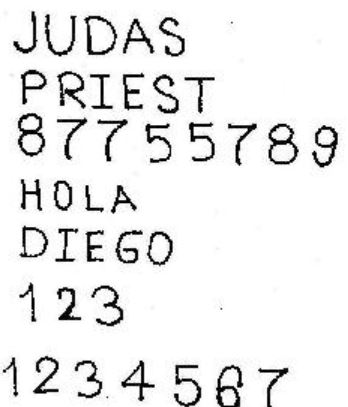 JUDAS
PRIEST
87755789
HOLA
DIEGO
123
1234567